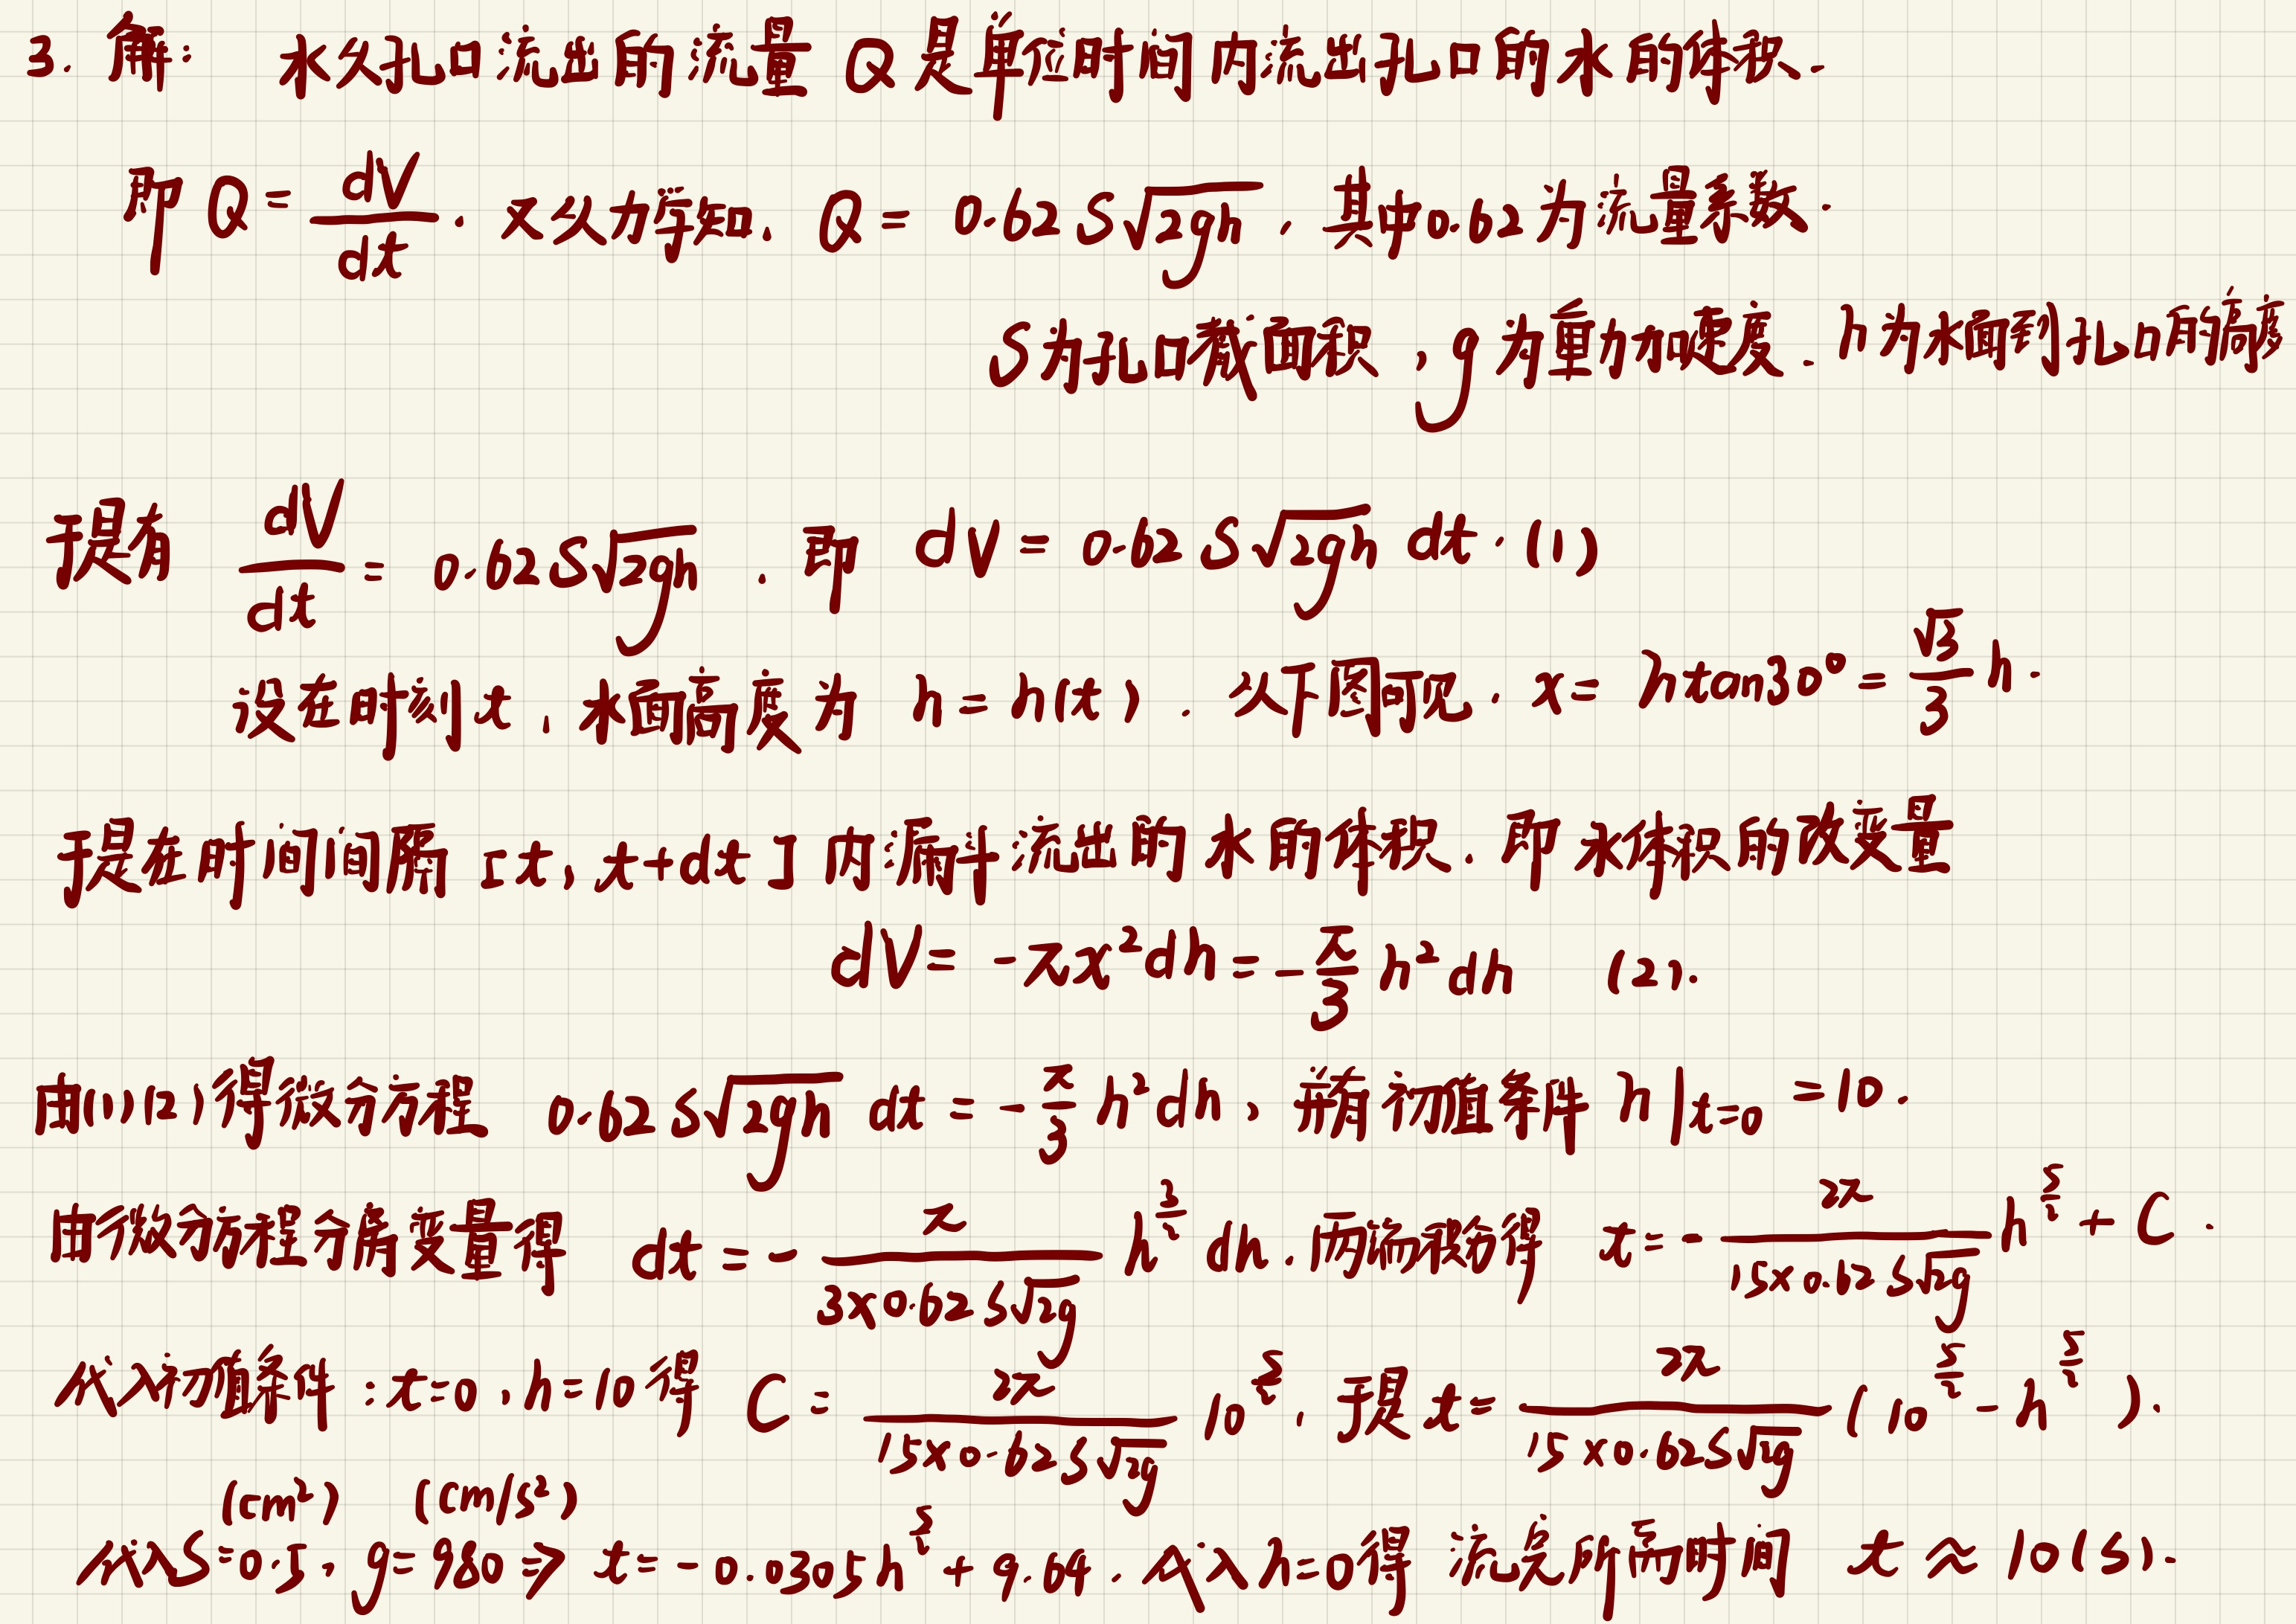 3. 解: 水从孔口流出的流量 Q 是单位时间内流出孔口的水的体积.
即 Q = dV/dt. 又从力学知, Q = 0.62 S√(2gh), 其中0.62为流量系数.
S为孔口截面积, g为重力加速度. h为水面到孔口的高度
于是有 dV/dt = 0.62 S√(2gh). 即 dV = 0.62 S√(2gh) dt. (1)
设在时刻 t, 水面高度为 h = h(t). 从下图可见. x = h tan30° = (√3/3) h.
于是在时间间隔 [t, t+dt] 内漏斗流出的水的体积. 即水体积的改变量
dV = -πx²dh = -(π/3) h² dh (2).
由(1)(2)得微分方程 0.62 S√(2gh) dt = -(π/3) h² dh, 并有初值条件 h|t=0 = 10.
由微分方程分离变量得 dt = - π/(3×0.62 S√(2g)) h^(3/2) dh. 两端积分得 t = - 2π/(15×0.62 S√(2g)) h^(5/2) + C.
代入初值条件: t=0, h=10 得 C = 2π/(15×0.62 S√(2g)) 10^(5/2), 于是 t = 2π/(15×0.62 S√(2g)) (10^(5/2) - h^(5/2)).
(cm²) (cm/s²)
代入S=0.5, g=980 ⇒ t = -0.0305 h^(5/2) + 9.64. 代入h=0得 流完所需时间 t ≈ 10(s).